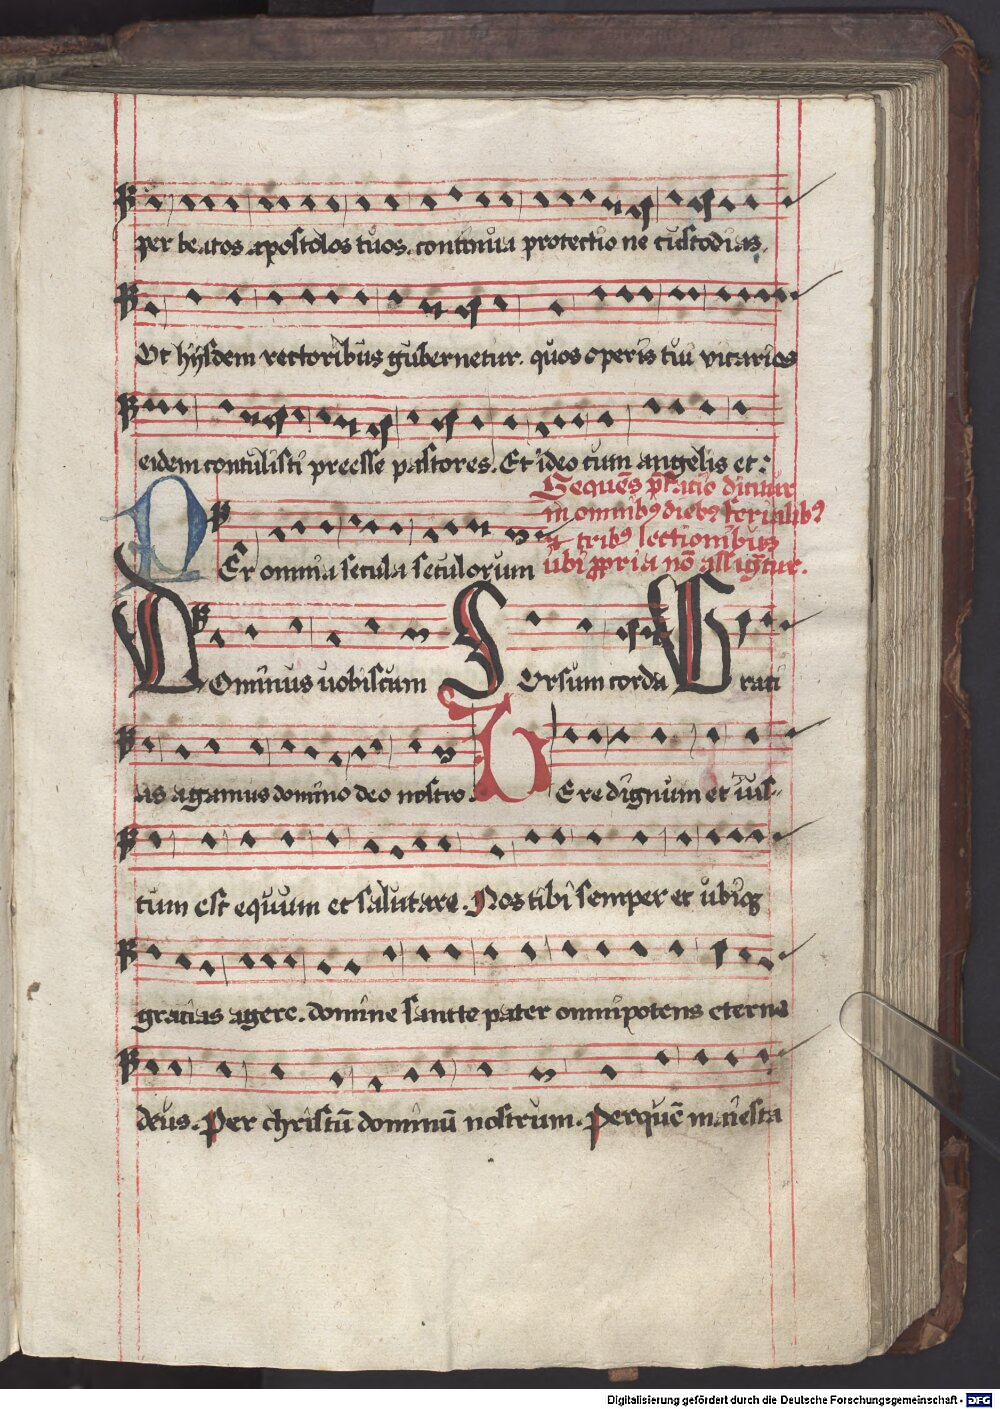 per beatos apostolos tuos. continua protectio ne custodias.
Ut hijsdem rectoribus gubernetur. quos operis tui vicarios
eidem contulisti preesse pastores. Et ideo cum angelis et:
Sequens p̄fatio dicitur
in omnibꝰ diebꝰ ferialibꝰ
et tribꝰ lectionibus
ubi ꝓpria nō assigt̄ur.
PEr omnia secula seculorum
DOminus uobiscum SUrsum corda Grati
as agamus domino deo nostro. UEre dignum et ius-
tum est equum et salutare. Nos tibi semper et ubiqꝫ
gratias agere. domine sancte pater omnipotens eterne
deus. Per christū dominū nostrum. Per quē maiesta
Digitalisierung gefördert durch die Deutsche Forschungsgemeinschaft - DFG